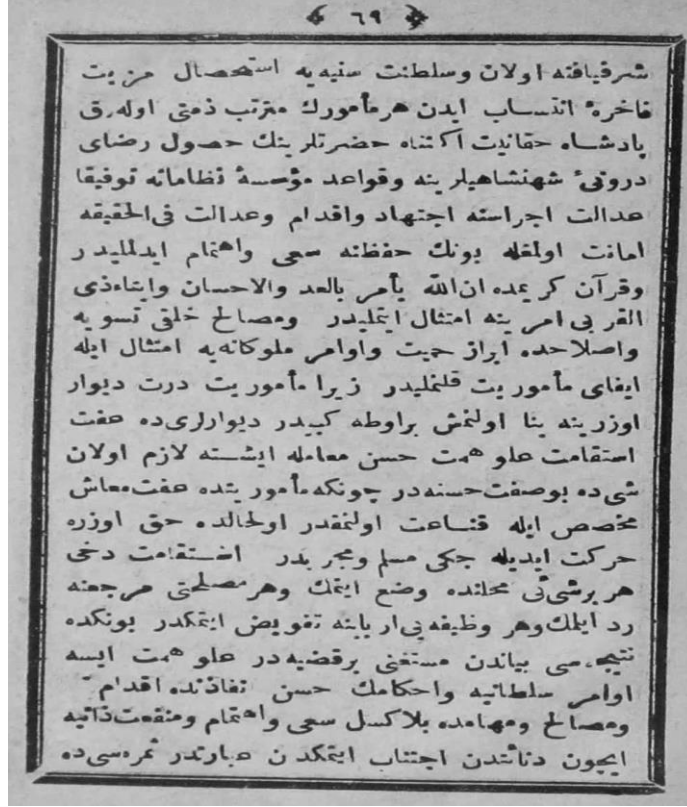 ٦٩
شرفیافته اولان وسلطنت سنیه یه استحصال مزیت
فاخره‌ٔ انتساب ایدن هر مأمورك مترتب ذمتی اوله‌رق
پادشاه حقانیت اکتناه حضرتلرینك حصول رضای
درونیٔ شهنشاهیلرینه وقواعد مؤسسهٔ نظاماته توفیقا
عدالت اجراسنه اجتهاد واقدام وعدالت فی‌الحقیقه
امانت اولمغله بونك حفظنه سعی واهتمام ایدلملیدر
وقرآن کریمده ان‌الله یأمر بالعد والاحسان وایتاءذی
القربی امرینه امتثال ایتملیدر ومصالح خلقی تسویه
واصلاحده ابراز حمیت واوامر ملوکانه‌یه امتثال ایله
ایفای مأموریت قلنملیدر زیرا مأموریت درت دیوار
اوزرینه بنا اولنمش براوطه کبیدر دیوارلری‌ده عفت
استقامت علو همت حسن معامله ایشته لازم اولان
شی‌ده بوصفت حسنه‌در چونکه مأموریتده عفت معاش
مخصص ایله قناعت اولنمقدر اولحالده حق اوزره
حرکت ایدیله جکی مسلم ومجربدر استقامت دخی
هر برشی‌ئی محلنده وضع ایتمك وهر مصلحتی مرجعنه
رد ایلمك وهر وظیفه‌یی اربابنه تفویض ایتمکدر بونکده
نتیجه‌سی بیاندن مستغنی برقضیه‌در علو همت ایسه
اوامر سلطانیه واحکامك حسن نفاذنده اقدام
ومصالح ومهامده بلاکسل سعی واهتمام ومنفعت ذاتیه
ایچون دنائتدن اجتناب ایتمکدن عبارتدر ثمره‌سی‌ده